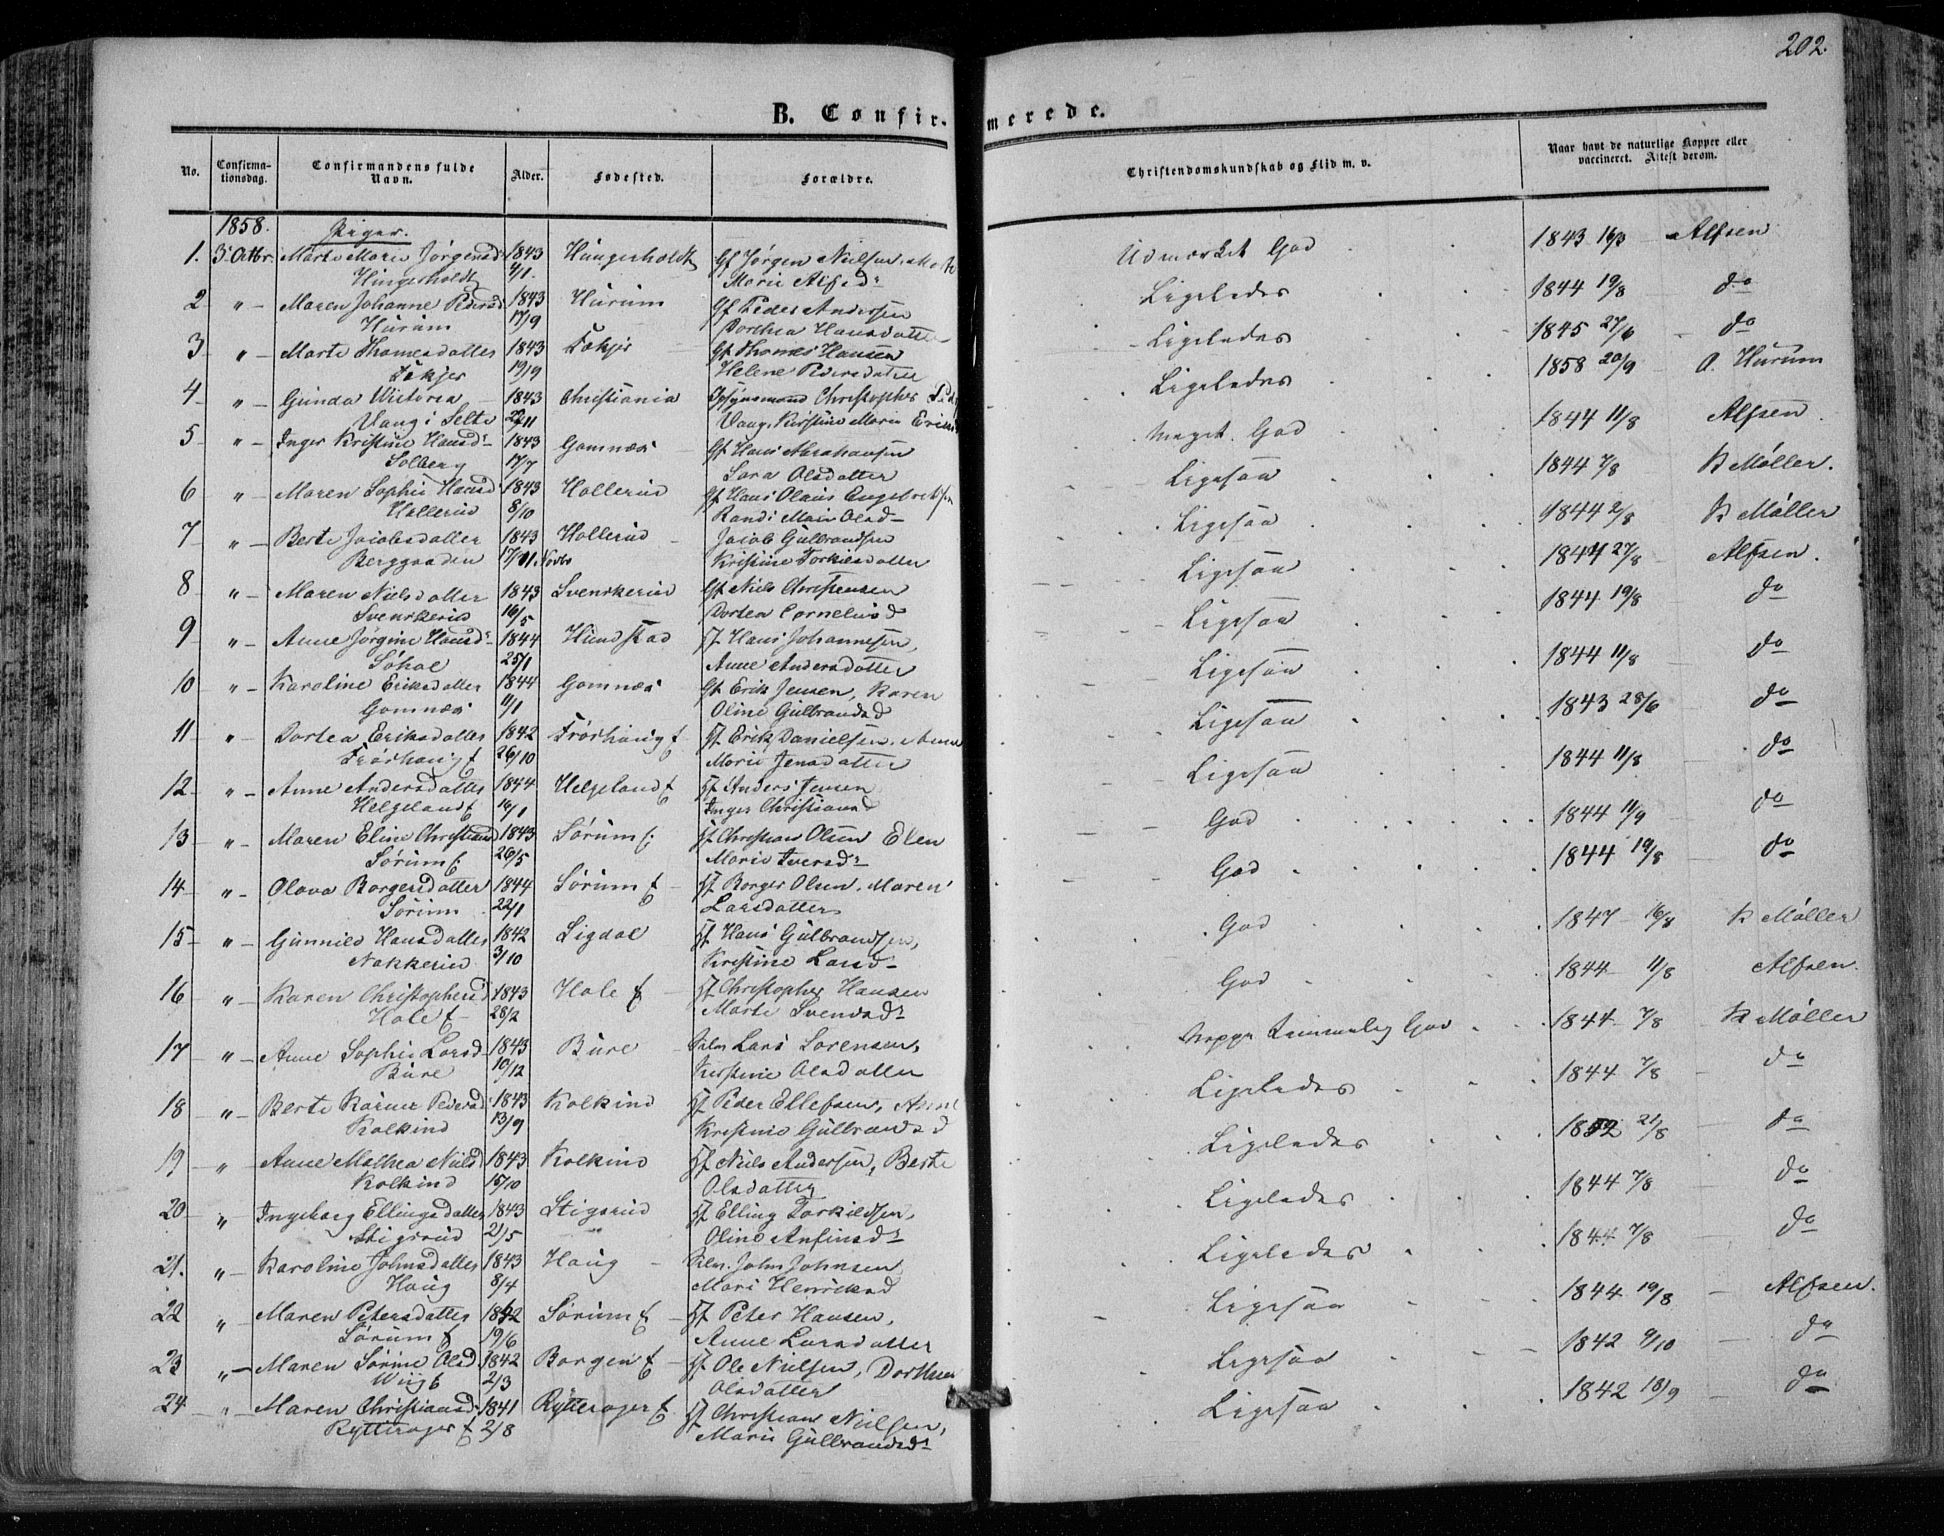 202.
B. Confirmerede.
No. Confirmationsdag. Confirmandens fulde Navn. Alder. Fødested. Forældre. Christendomskundskab og Flid m. v. Naar havt de naturlige Kopper eller vaccineret. Attest derom.
1858. Piger.
1. 3 Octbr. Marte Marie Jørgensd 1843 Hungerholdt Gf Jørgen Nielsen, Marte Udmærket God 1843 16/3 Alfsen
Hungerholdt 4/1. Marie Alfsdr
2 " Maren Johanne Pedersd 1843 Hurum Gf Peder Andersen Ligeledes 1844 19/8 do
Hurum 17/9 Dorthea Hansdatter
3 " Marte Thomesdatter 1843 Løkjer Gf Thomes Hansen Ligeledes 1845 27/6 do
Løkjer 19/9 Helene Pedersdatter
4 " Gunda Victoria 1843 Christiania Christopher Ligeledes 1858 20/9 O. Hurum
Vaug i Selte 22/11 Vaug, Kirstine Marie
5 " Inger Kristine Hansdr 1843 Gomnæs Gf Hans Abrahamsen Meget God 1844 11/8 Alfsen
Solberg 17/7 Sara Olsdatter
6 " Maren Sophie Hansd 1843 Hollerud Gf Hans Olaus Engebretsen Ligesaa 1844 7/8 K Møller.
Hollerud 8/10 Randi Marie Olsd
7 " Berte Jacobsdatter 1843 Hollerud Jacob Gulbrandsen Ligesaa 1844 2/8 K Møller
Berggaarden 17/11 Kristine Torkilsdatter
8 " Maren Nielsdatter 1843 Svenskerud Gf Niels Christensen Ligesaa 1844 27/8 Alfsen.
Svenskerud 16/5 Dortea Cornelius d
9 " Anne Jørgine Hansdr 1844 Hundstad Hans Johannesen, Ligesaa 1844 19/8 do
Søhol 25/1 Anne Andersdatter
10 " Karoline Eriksdatter 1844 Gomnæs Gf Erik Jensen, Karen Ligesaa 1844 11/8 do
Gomnæs 11/1 Oline Gulbrandsd
11 " Dortea Eriksdatter 1842 Frøshaug E Erik Danielsen, Anne Ligesaa 1843 28/6 do
Frøshaug E 26/10 Marie Jensdatter
12 " Anne Andersdatter 1844 Helgeland E Anders Jensen Ligesaa 1844 11/8 do
Helgeland E 16/1 Inger Christiansd
13 " Maren Eline Christiansd 1843 Sørum E. Christian Olsen Elen God 1844 11/9 do
Sørum E 26/5 Marie Iversdr
14 " Olava Borgersdatter 1844 Sørum E Borger Olsen, Maren God 1844 19/8 do
Sørum 22/1 Larsdatter
15 " Gunnild Hansdatter 1842 Sigdal Hans Gulbrandsen, God 1847 16/8 K Møller
Nakkerud 3/10 Kristine Larsd
16 " Karen Christophersd 1843 Hole E Christopher Hansen God 1844 11/8 Alfsen.
Hole E 28/2 Marte Svendsdr
17 " Anne Sophie Larsd 1843 Bure Lars Sorensen, Noppe temmelig God 1844 7/8 K Møller
Bure 10/12 Kirstine Olsdatter
18 " Berte Karine Pedersd 1843 Kolkind Peder Ellefsen, Anne Ligeledes 1844 7/8 do
Kolkind 13/9 Kristine Gulbrandsd
19 " Anne Mathea Nielsd 1843 Kolkind Niels Andersen, Berte Ligeledes 1852 21/8 do
Kolkind 15/10 Olsdatter
20 " Ingeborg Ellingsdatter 1843 Stigsrud Elling Torkildsen, Ligeledes 1844 7/8 do
Stigsrud 21/5 Oline Anfinsdr
21. " Karoline Johnsdatter 1843 Haug John Johnsen Ligeledes 1844 7/8 do
Haug 8/4 Mari Henriksd
22 " Maren Petersdatter 1842 Sørum E Peter Hansen, Ligesaa 1844 19/8 Alfsen.
Sørum E 19/6 Anne Larsdatter
23 " Maren Sørine Olsd 1842 Borgen E Ole Nielsen, Dorthea Ligesaa 1842 9/10 do
Wiig E 2/3 Olsdatter
24 " Maren Christiansd 1841 Rytterager E Christian Nielsen, Ligesaa 1842 18/9 do
Rytterager E 2/8 Marie Gulbrandsdr